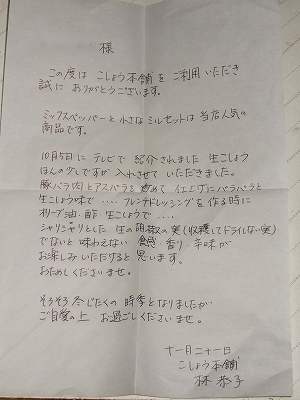 様
この度は こしょう本舗を ご利用いただき
誠に ありがとうございます。
ミックスペッパーと小さなミルセットは 当店人気の
商品です。
10月5日に テレビで 紹介されました 生こしょう
ほんの少しですが 入れさせて いただきました。
豚バラ肉とアスパラを炒めて 仕上げにパラパラと
生こしょう味で‥‥ フレンチドレッシングを作る時に
オリーブ油・酢 生こしょうで‥‥
シャリシャリとした 生の胡椒の実(収穫してドライしない実)
でないと味わえない 食感・香り・辛味が
お楽しみいただけると思います。
おためしくださいませ。
そろそろ 冬じたくの 時季となりましたが
ご自愛の上 お過ごしくださいませ。
十一月二十一日
こしょう本舗
林 恭子